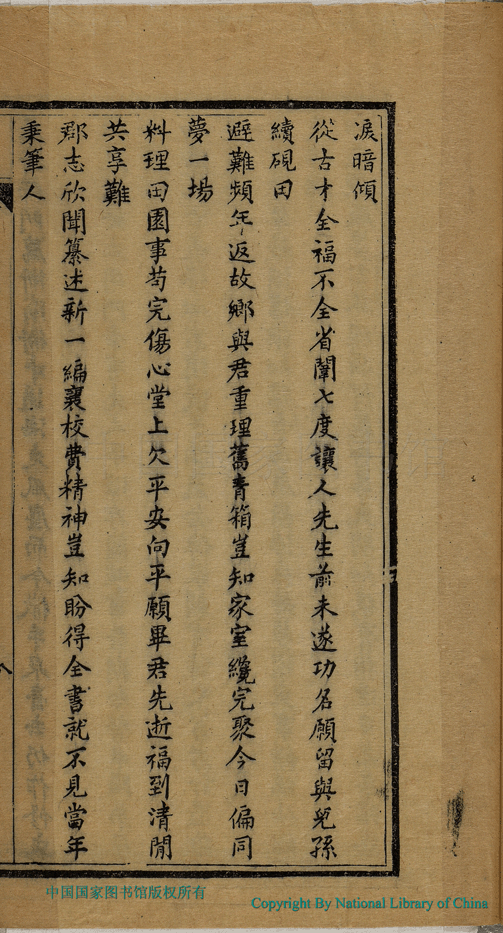 淚暗傾
從古才全福不全省闈七度讓人先生前未遂功名願留與兒孫
續硯田
避難頻年返故鄉與君重理舊青箱豈知家室纔完聚今日偏同
夢一場
料理田園事苟完傷心堂上欠平安向平願畢君先逝福到清閒
共享難
郡志欣聞纂述新一編襄校費精神豈知盼得全書就不見當年
秉筆人
中国国家图书馆版权所有
Copyright By National Library of China